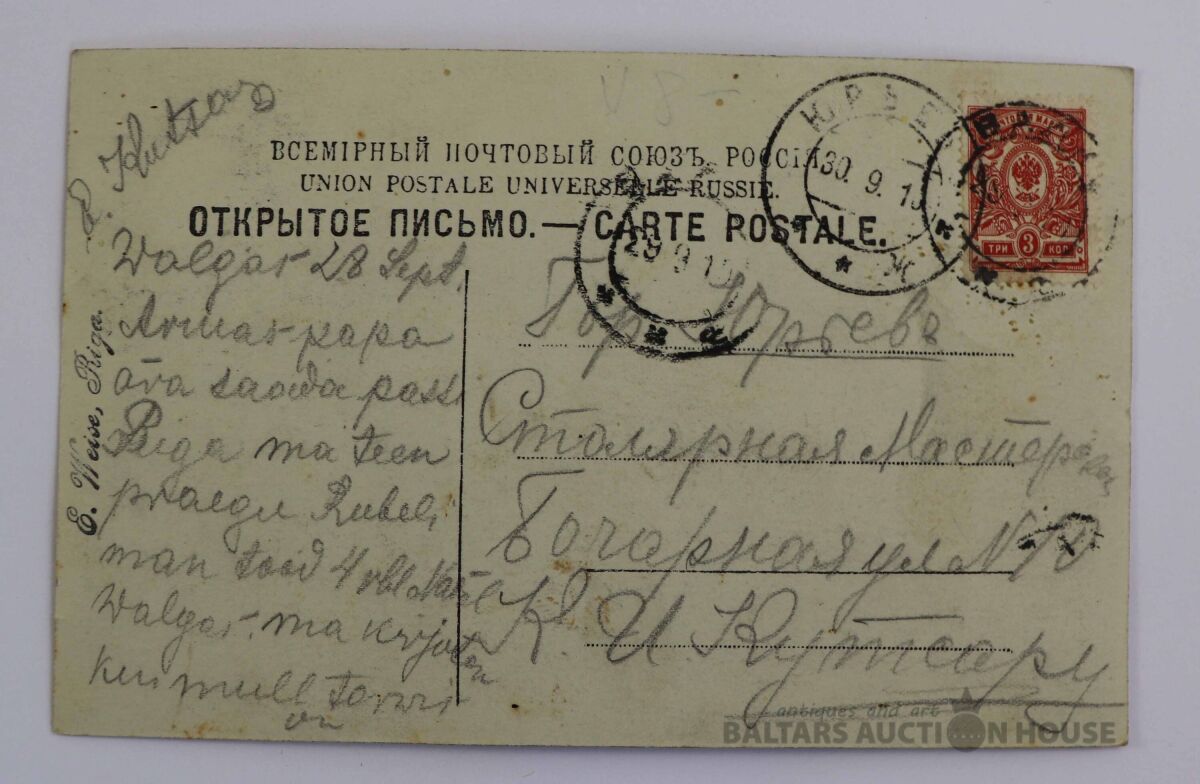 V 8 -
ВСЕМІРНЫЙ ПОЧТОВЫЙ СОЮЗЪ. РОССІЯ.
UNION POSTALE UNIVERSELLE RUSSIE.
ОТКРЫТОЕ ПИСЬМО. — CARTE POSTALE.
ЮРЬЕВ
30. 9. 1
29 9 1
ТРИ 3 КОП.
Kutsar
Walgas 28 Sept.
Armas papa
ära saada passi
Riga ma teen
praegu Rubeli
man tood 4 rbl
Walgas. ma kirjutan
kui mull tarwis
on
E. Weise, Riga.
Гор Юрьевъ
Столярная Мастерская
Бочарная ул N 10
К. И Кутсару
antiques and art
BALTARS AUCTION HOUSE